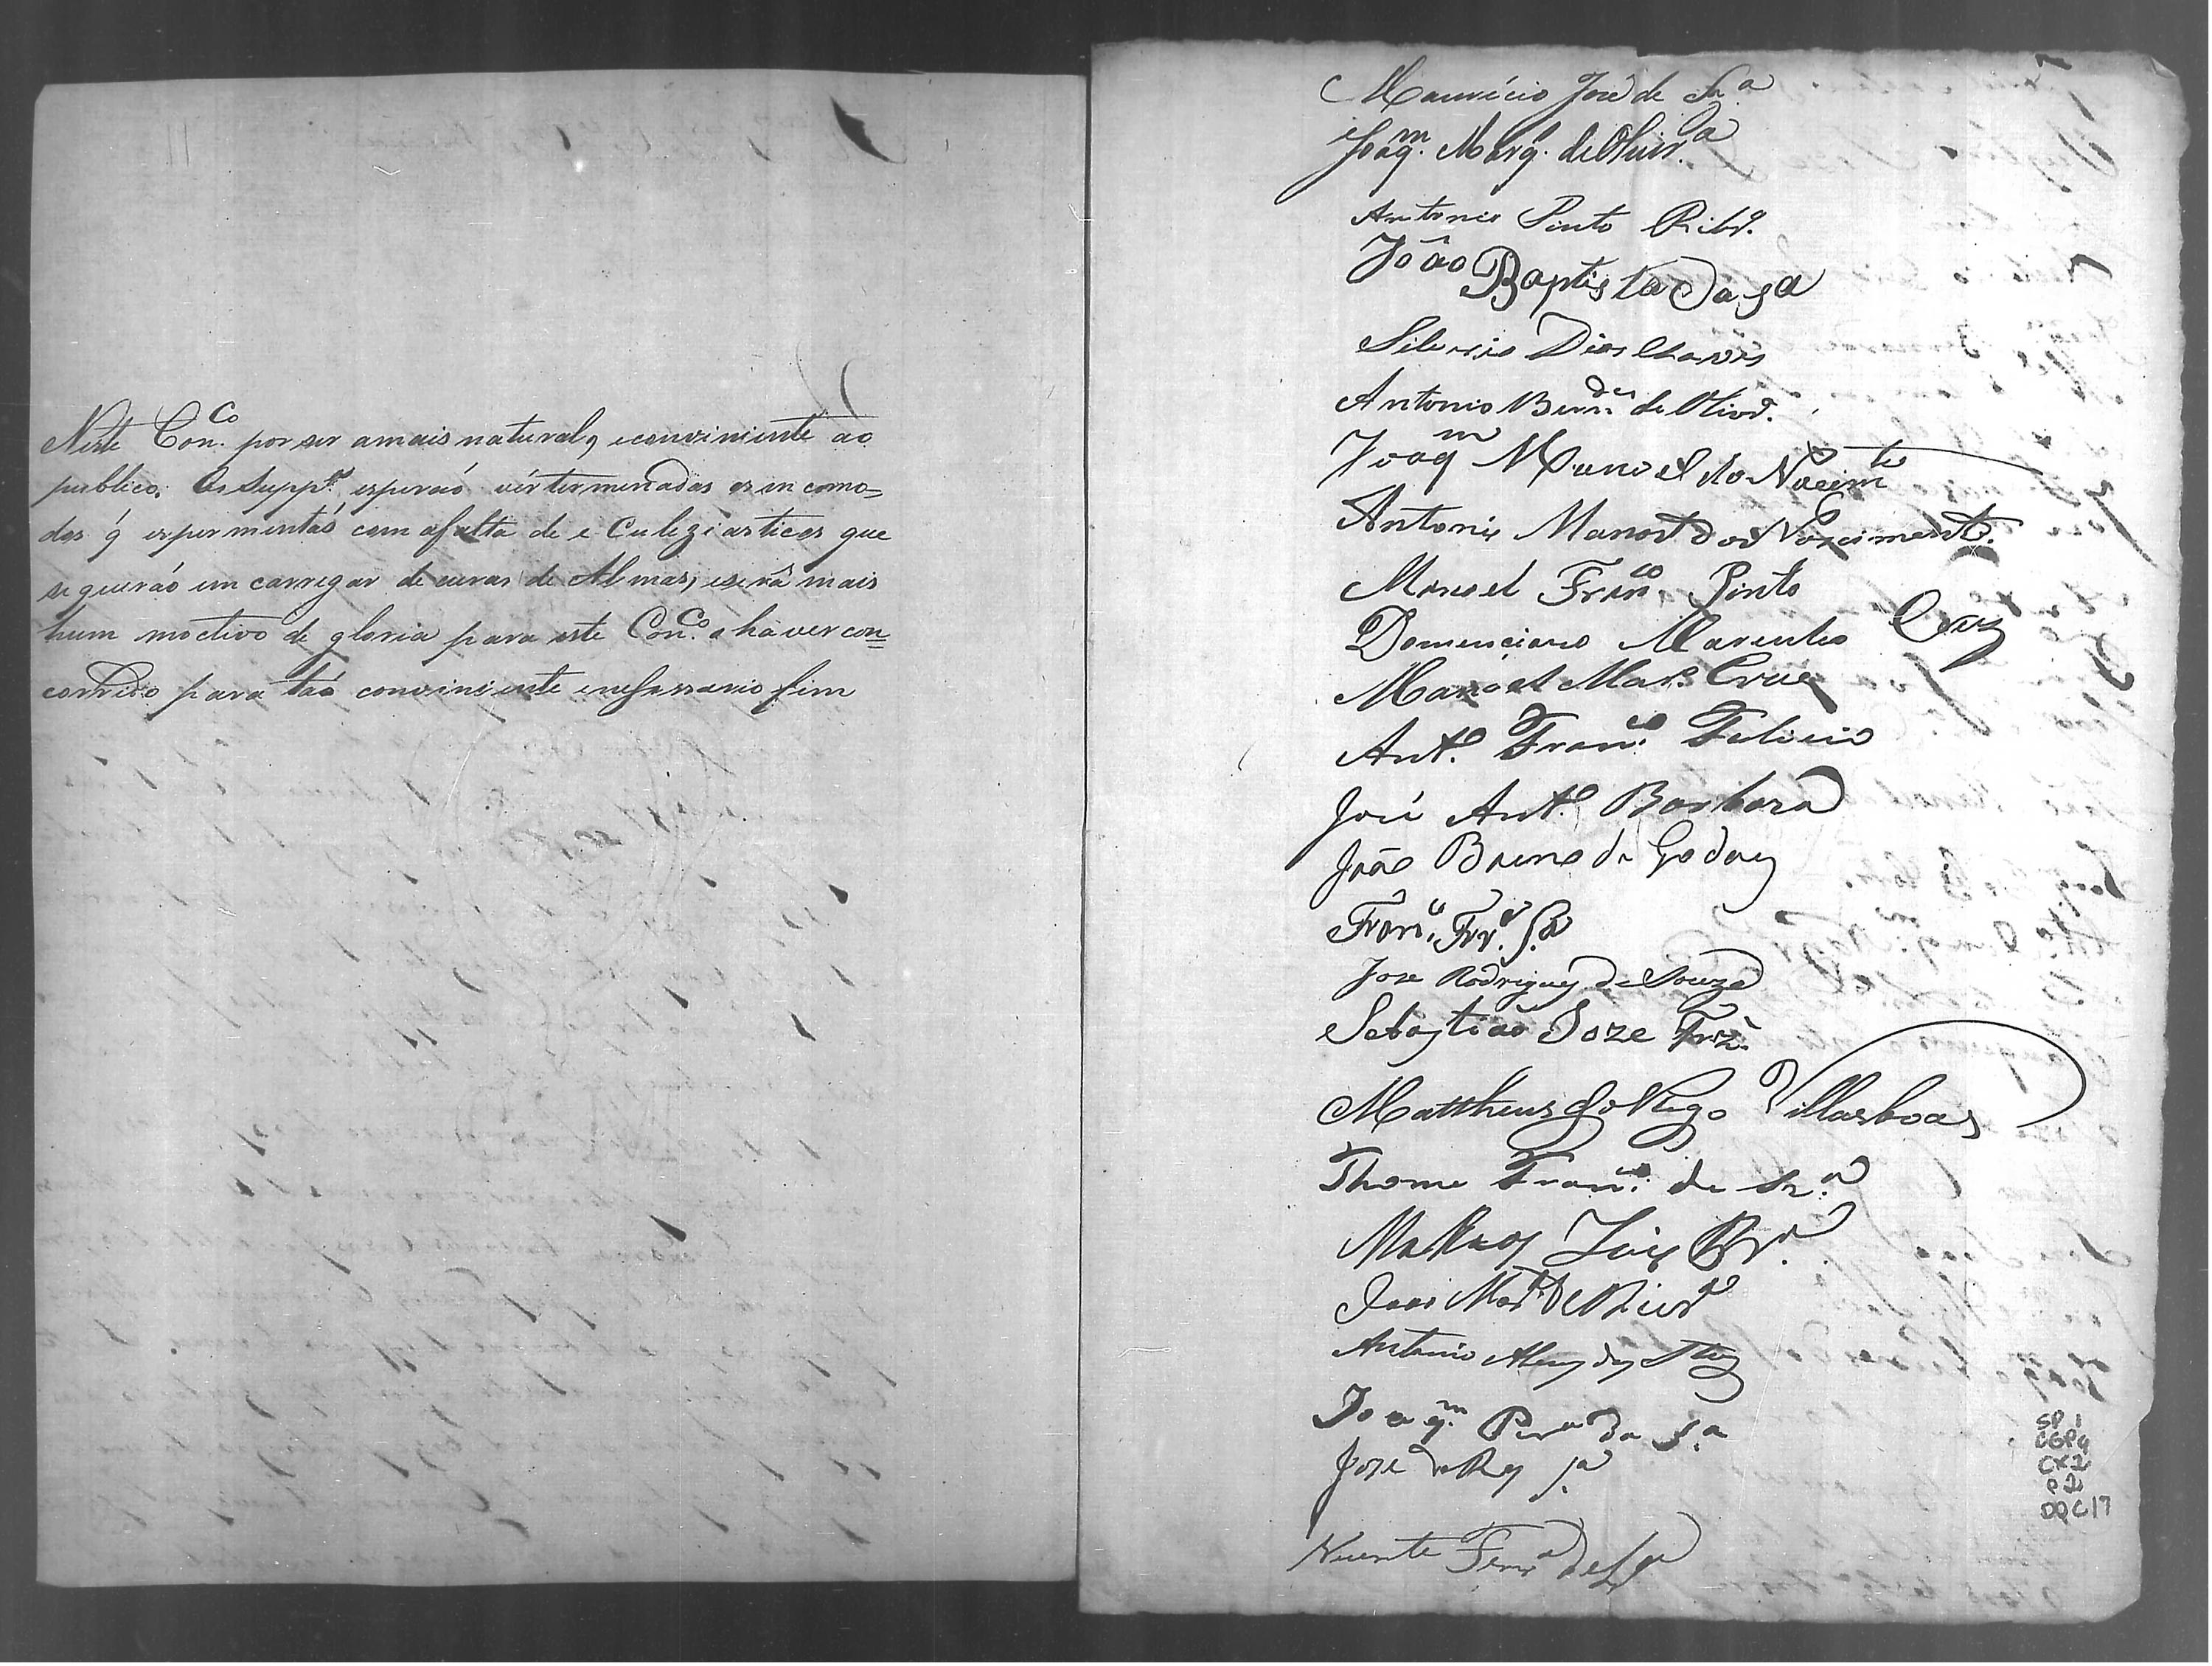 Neste Con.co por ser amais natural, econviniente ao
publico. Os Supp.es esperaó vér terminadas os incomo=
dos q̃ expermentaó com afalta de eCuleziasticos que
se queiráo emcarregar de curas de Almas, eserâ mais
hum moctivo de gloria para este Con.co o háver con=
corrido para taó conviniente enessessario fim
Mauricio José de S.a
Joaq.m Marq. de Oliveir.a
Antonio Pinto Ribr.o
Joâo Baptista da S.a
Silverio Dias Chaves
Antonio Bern.des de Olivr.a
Joaq.m Manoel do Nacim.to
Antonio Manoel do Nascimento.
Manoel Fran.co Pinto
Domenciano Marcules Cruz
Manoel Mar. Cruz
Ant.o Fran.co Felicio
José Ant.o Barbara
João Bueno de Godoy
Fran.co Frr.a S.a
Jose Rodrigues de Souza
Sebastião Joze Frz.
Mattheus do Rego Villasboas
Thome Fran.co de Sz.a
Matheos Luis
Antonio Alves dos
Joaq.m Per.a da S.a
Joze S.a
Vicente Ferr.a de
SP 1
CGP9
CX2
P2
DOC17